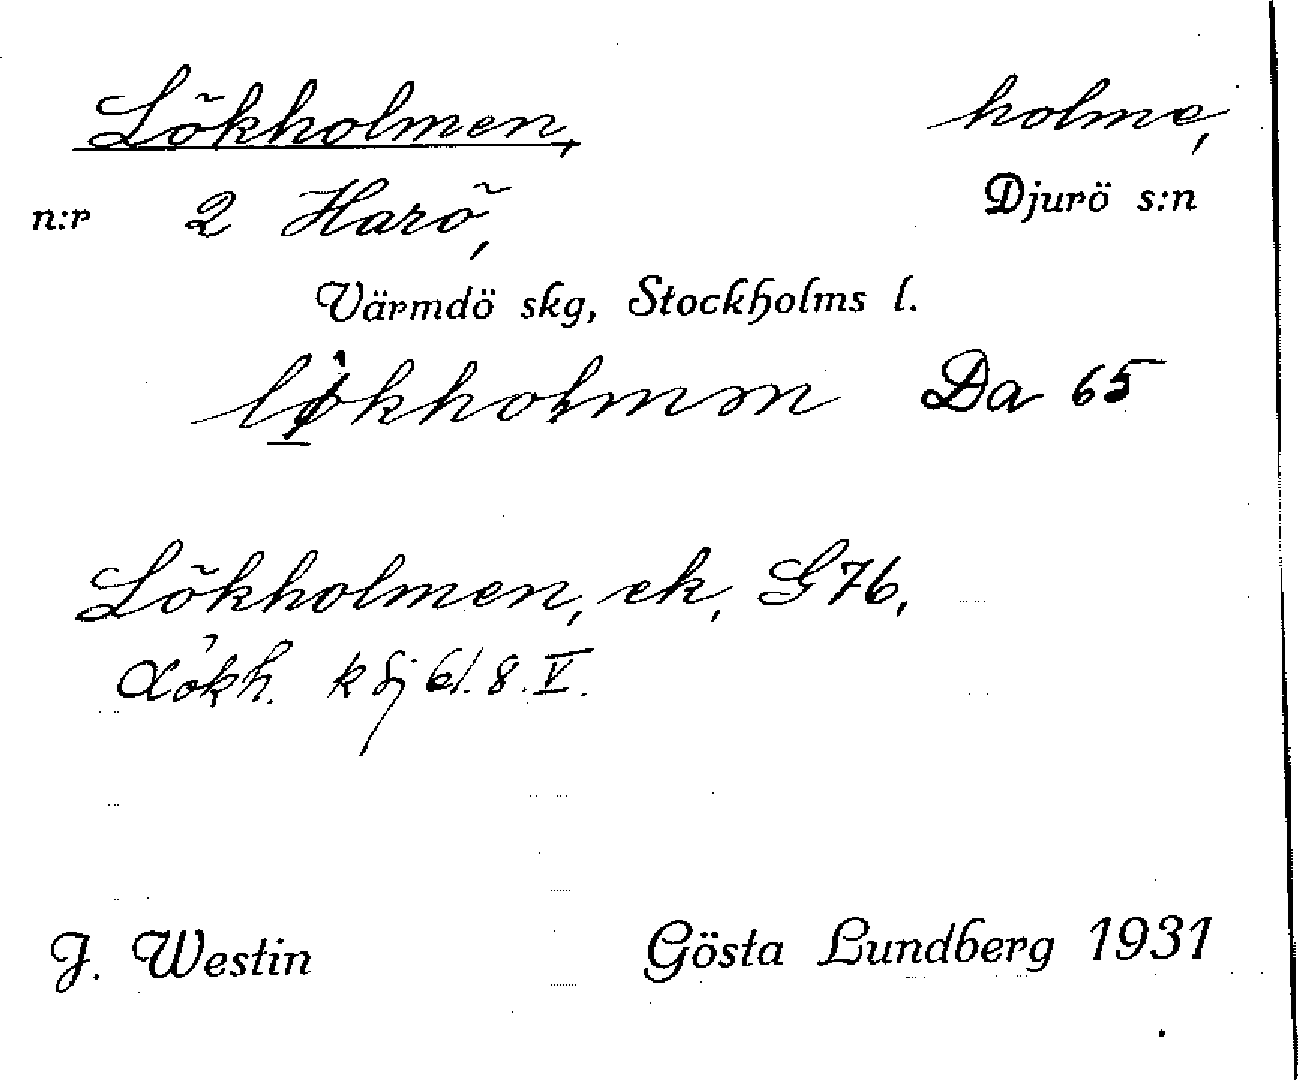 Lökholmen, holme,
n:r 2 Harö, Djurö s:n
Värmdö skg, Stockholms l.
lø̀kholmm Da 65
Lökholmen, ek, G76,
Lökh. 61. 8. V.
J. Westin Gösta Lundberg 1931